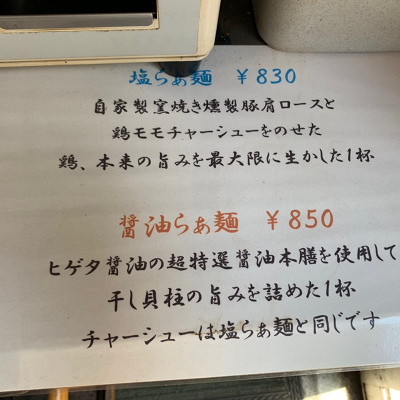 塩らぁ麺 ¥830
自家製窯焼き燻製豚肩ロースと
鶏モモチャーシューをのせた
鶏、本来の旨みを最大限に生かした1杯
醤油らぁ麺 ¥850
ヒゲタ醤油の超特選醤油本膳を使用して
干し貝柱の旨みを詰めた1杯
チャーシューは塩らぁ麺と同じです